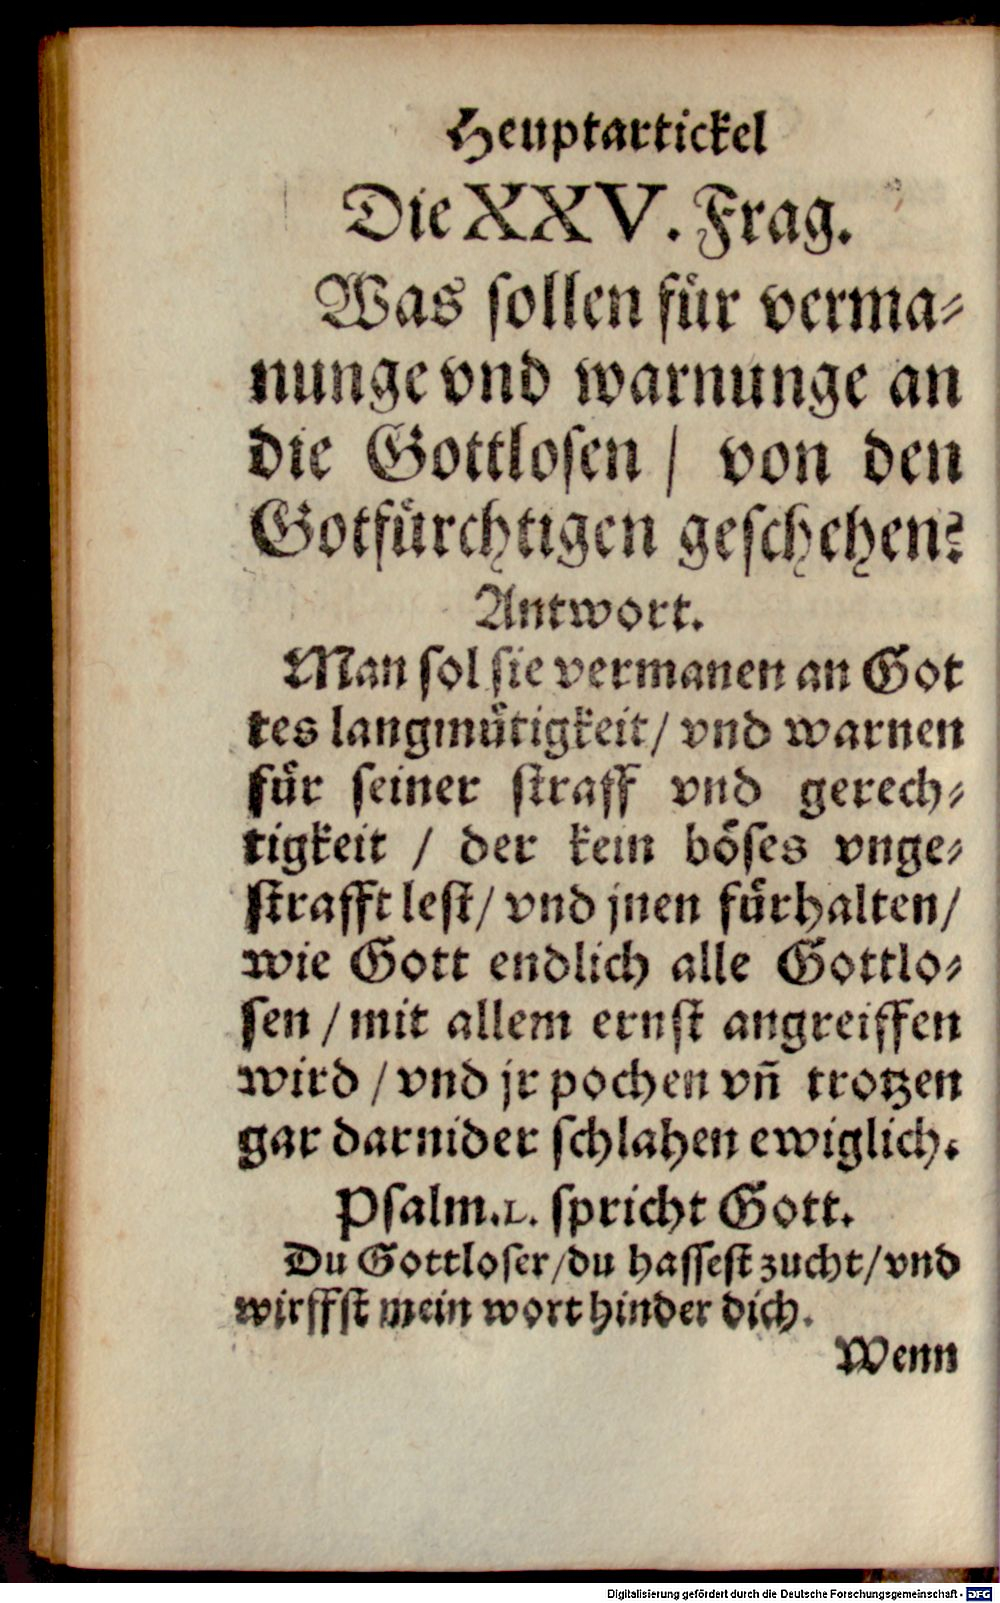 Heuptartickel
Die XXV. Frag.
Was sollen für verma-
nunge vnd warnunge an
die Gottlosen / von den
Gotfürchtigen geschehen?
Antwort.
Man sol sie vermanen an Got
tes langmütigkeit/ vnd warnen
für seiner straff vnd gerech-
tigkeit / der kein böses vnge-
strafft lest/ vnd jnen fürhalten/
wie Gott endlich alle Gottlo-
sen / mit allem ernst angreiffen
wird / vnd jr pochen vñ trotzen
gar darnider schlahen ewiglich.
Psalm.L. spricht Gott.
Du Gottloser/du hassest zucht/vnd
wirffst mein wort hinder dich.
Wenn
Digitalisierung gefördert durch die Deutsche Forschungsgemeinschaft - DFG